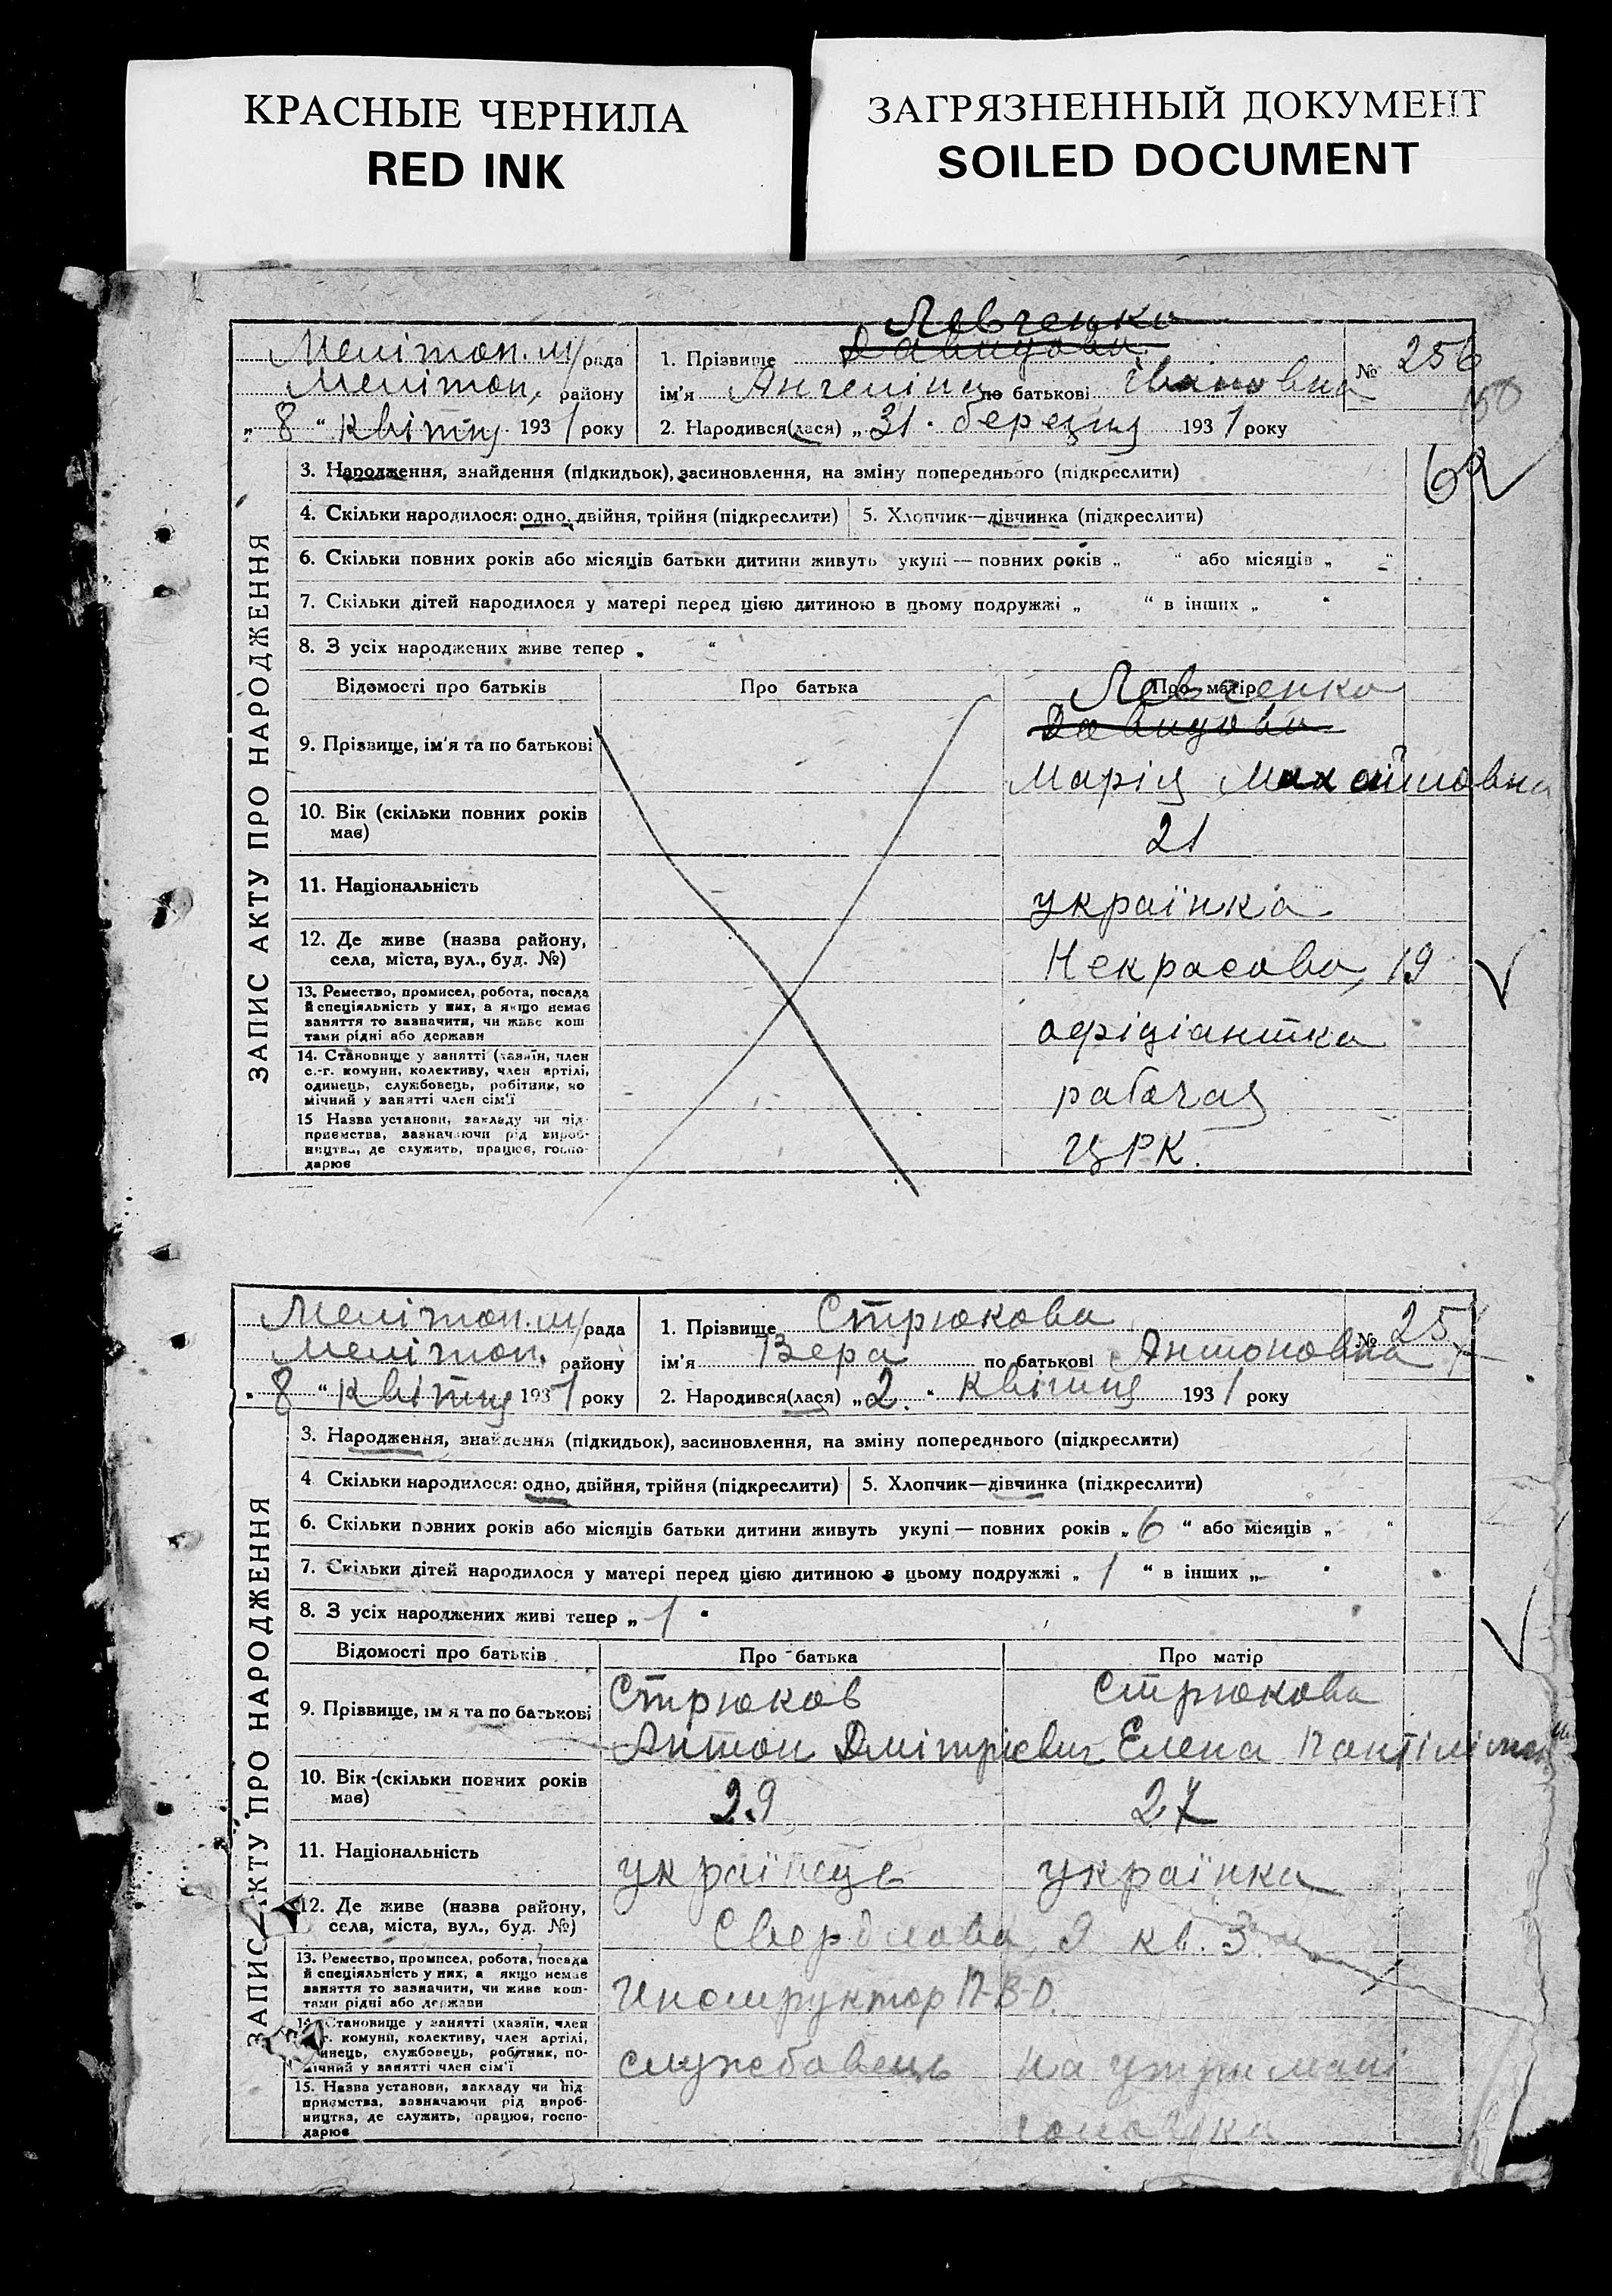 КРАСНЫЕ ЧЕРНИЛА
RED INK
ЗАГРЯЗНЕННЫЙ ДОКУМЕНТ
SOILED DOCUMENT
ЗАПИС АКТУ ПРО НАРОДЖЕННЯ
Левченко
Мелітоп. м/рада 1. Прізвище Давидова № 256
Мелітоп. району ім'я Ангеліна по батькові Івановна
„ 8 “ квітня 1931 року 2. Народився(лася) „ 31 “ березня 1931 року
3. Народження, знайдення (підкидьок), засиновлення, на зміну попереднього (підкреслити)
4. Скільки народилося: одно, двійня, трійня (підкреслити) 5. Хлопчик—дівчинка (підкреслити)
6. Скільки повних років або місяців батьки дитини живуть укупі — повних років „ “ або місяців „ “
7. Скільки дітей народилося у матері перед цією дитиною в цьому подружжі „ “ в інших „ “
8. З усіх народжених живе тепер „ “
Відомості про батьків Про батька Про матір
Левченко
Давидова
9. Прізвище, ім'я та по батькові Марія Михайловна
10. Вік (скільки повних років має) 21
11. Національність українка
12. Де живе (назва району, села, міста, вул., буд. №) Некрасова, 19
13. Ремество, промисел, робота, посада й спеціяльність у них, а якщо немає заняття то зазначити, чи живе коштами рідні або держави офіціантка
14. Становище у занятті (хазяїн, член с.-г. комуни, колективу, член артілі, одинець, службовець, робітник, помічний у занятті член сім'ї рабочая
15 Назва установи, закладу чи підприємства, зазначаючи рід виробництва, де служить, працює, господарює ЦРК.
ЗАПИС АКТУ ПРО НАРОДЖЕННЯ
Мелітоп. м/рада 1. Прізвище Стрюкова № 257
Мелітоп. району ім'я Вера по батькові Антоновна
„ 8 “ квітня 1931 року 2. Народився(лася) „ 2. “ квітня 1931 року
3. Народження, знайдення (підкидьок), засиновлення, на зміну попереднього (підкреслити)
4 Скільки народилося: одно, двійня, трійня (підкреслити) 5. Хлопчик—дівчинка (підкреслити)
6. Скільки повних років або місяців батьки дитини живуть укупі — повних років „ 6 “ або місяців „ “
7. Скільки дітей народилося у матері перед цією дитиною в цьому подружжі „ 1 “ в інших „ “
8. З усіх народжених живі тепер „ 1 “
Відомості про батьків Про батька Про матір
Стрюков Стрюкова
9. Прізвище, ім'я та по батькові Антон Дмітрієвич Елена
10. Вік (скільки повних років має) 29 27
11. Національність українець українка
12. Де живе (назва району, села, міста, вул., буд. №) Свердлова, 9 кв. 3
13. Ремество, промисел, робота, посада й спеціяльність у них, а якщо немає заняття то зазначити, чи живе коштами рідні або держави Инструктор П-В-О.
14. Становище у занятті (хазяїн, член с.-г. комуни, колективу, член артілі, одинець, службовець, робітник, помічний у занятті член сім'ї службовець на утрімані
15. Назва установи, закладу чи підприємства, зазначаючи рід виробництва, де служить, працює, господарює